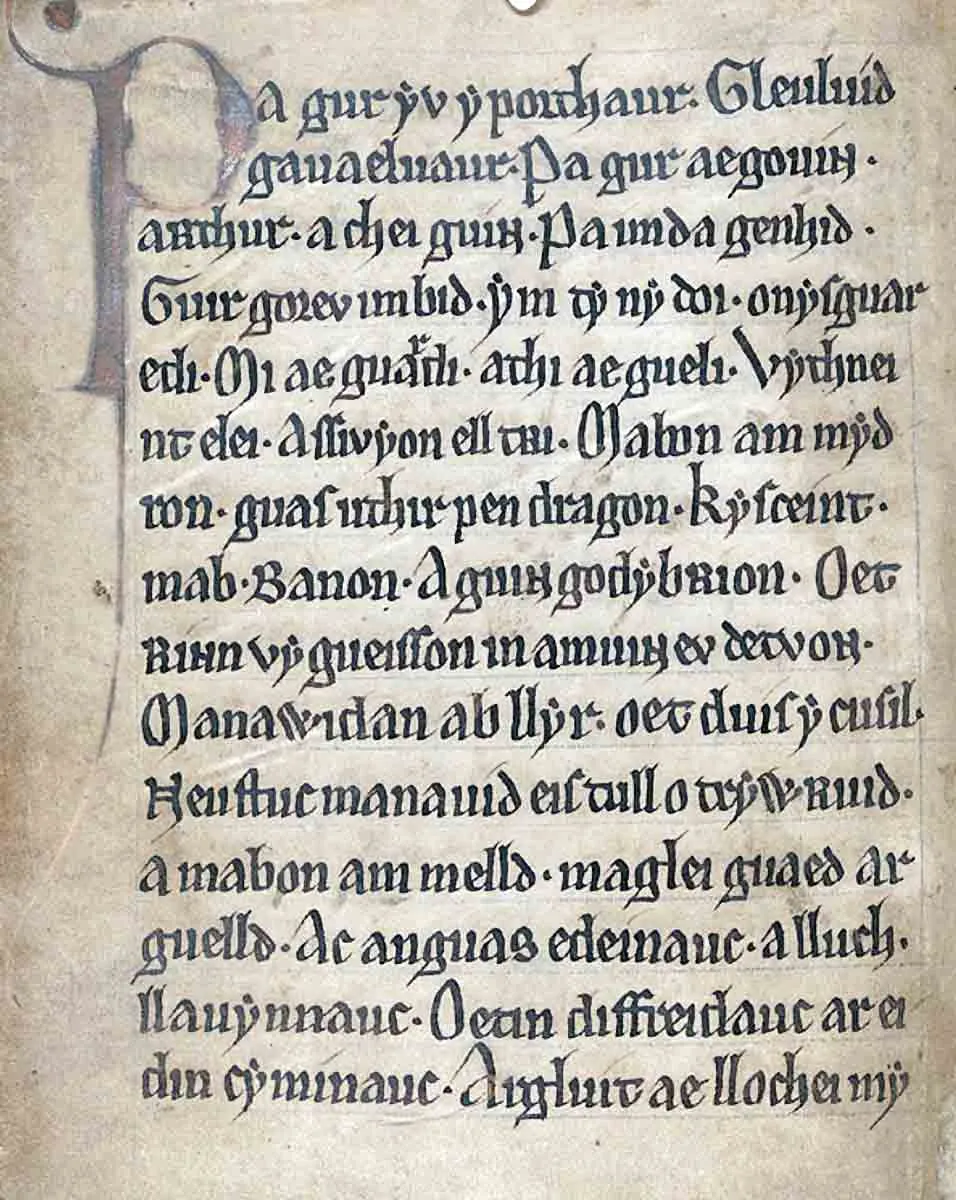 Pa gur ẏv ẏ porthaur. Gleuluid
gauaeluaur. Pa gur ae gouin.
arthur. a chei guin. Pa imda genhid.
Guir gorev im bid. ẏm tẏ nẏ doi. onẏs guar
edi. Mi ae guardi. athi ae gueli. Vythnei
nt elei. Assivẏon ell tri. Mabon am mẏd
ron. guas uthir pen dragon. kẏsceint.
mab. Banon. A guin godẏbrion. Oet
rinn vẏ gueisson in amuin ev detvon.
Manawidan ab llẏr. oet duis ẏ cusil.
Neustuc manauid eis tull o trẏwruid.
a mabon am melld. maglei guaed ar
guelld. Ac anguas edeinauc. a lluch.
llauẏnnauc. Oetin diffreidauc ar ei
din cẏminauc. Argluit ae llochei mẏ